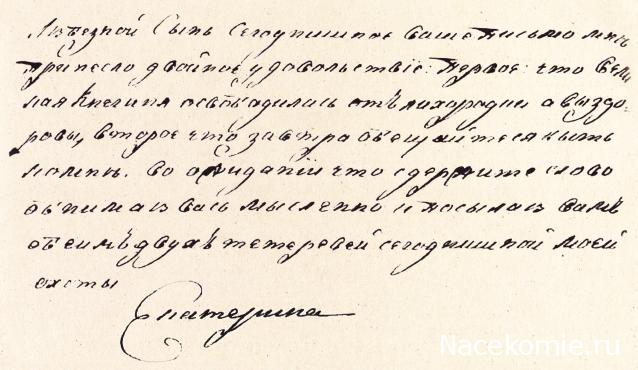 Любезной Сынъ Сегоднишное ваше Письмо мнѣ
принесло двойное удовольствіе: Первое: что Вели
кая Княгиня освободилась отъ лихорадки а вы здо-
ровы, второе что завтра обѣщаитеся быть
ко мнѣ. Во ожиданіи что сдержите слово
обнимаю васъ мысленно и посылаю вамъ
обеимъ двухъ тетеревей сегоднишной моей
охоты
Екатерина
Nacekomie.ru